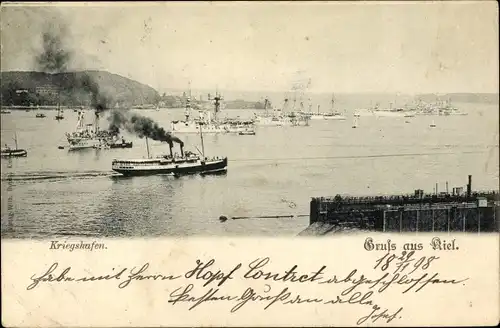 Kriegshafen.
Gruß aus Kiel.
18 20/11 98
Habe mit Herrn Hopf Contract abgeschlossen
Gruß an alle
Josef.